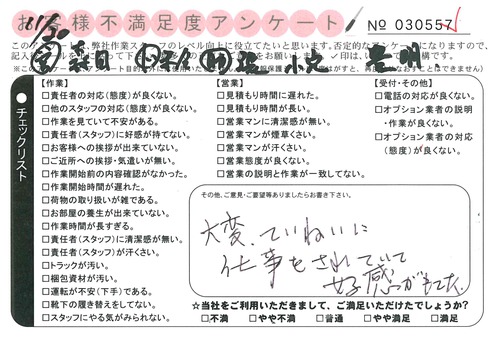 お客様不満足度アンケート
№ 030557
チェックリスト
【作業】
□責任者の対応(態度)が良くない。
□他のスタッフの対応(態度)が良くない。
□作業を見ていて不安がある。
□責任者(スタッフ)に好感が持てない。
□お客様への挨拶が出来ていない。
□ご近所への挨拶・気遣いが無い。
□作業開始前の内容確認がなかった。
□作業開始時間が遅れた。
□荷物の取り扱いが雑である。
□お部屋の養生が出来ていない。
□作業時間が長すぎる。
□責任者(スタッフ)に清潔感が無い。
□責任者(スタッフ)が汗くさい。
□トラックが汚い。
□梱包資材が汚い。
□運転が不安(下手)である。
□靴下の履き替えをしてない。
□スタッフにやる気がみられない。
【営業】
□見積もり時間に遅れた。
□見積もりが長い。
□営業マンに清潔感が無い。
□営業マンが煙草くさい。
□営業マンが汗くさい。
□営業態度が良くない。
□営業の説明と作業が一致してない。
【受付・その他】
□電話の対応が良くない。
□オプション業者の説明
・作業が良くない。
□オプション業者の対応
(態度)が良くない。
その他、ご意見・ご要望等ありましたらお書き下さい。
大変、ていねいに
仕事をされていて
好感がもてた。
☆当社をご利用いただきまして、ご満足いただけたでしょうか?
□不満 □やや不満 □普通 □やや満足 □満足